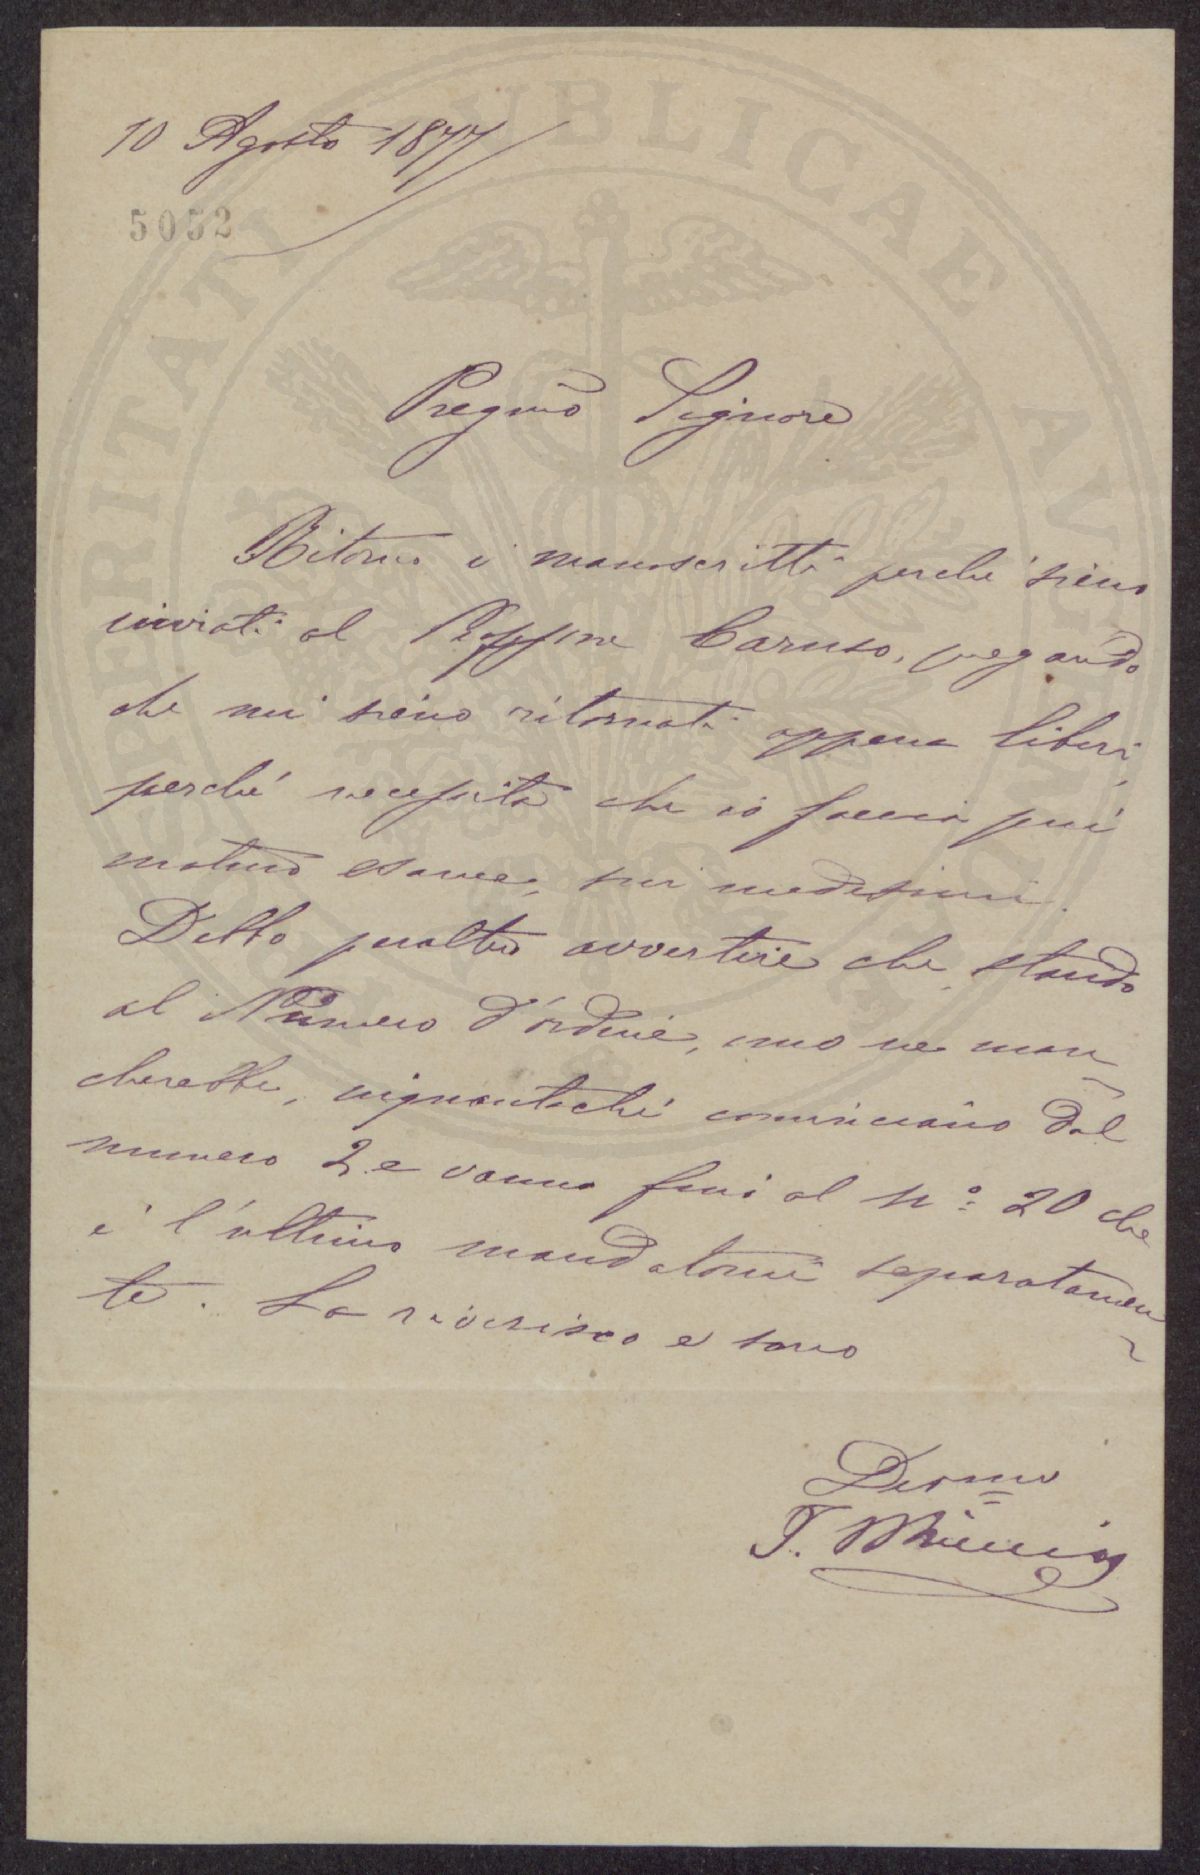 10 Agosto 1877
5052
Pregmo Signore
Ritorno i manoscritti perchè sieno
inviati al Professore Caruso, pregando
che mi sieno ritornati appena liberi,
perchè necessita che io faccia più
maturo esame sui medesimi.
Debbo peraltro avvertire che, stando
al Numero d'ordine, uno ne man
cherebbe, inquantochè cominciano dal
numero 2 e vanno fino al n.º 20 che
è l'ultimo mandatomi separatamen
te. La riverisco e sono
Devmo
F.
PROSPERITATI PUBLICAE AUGENDAE